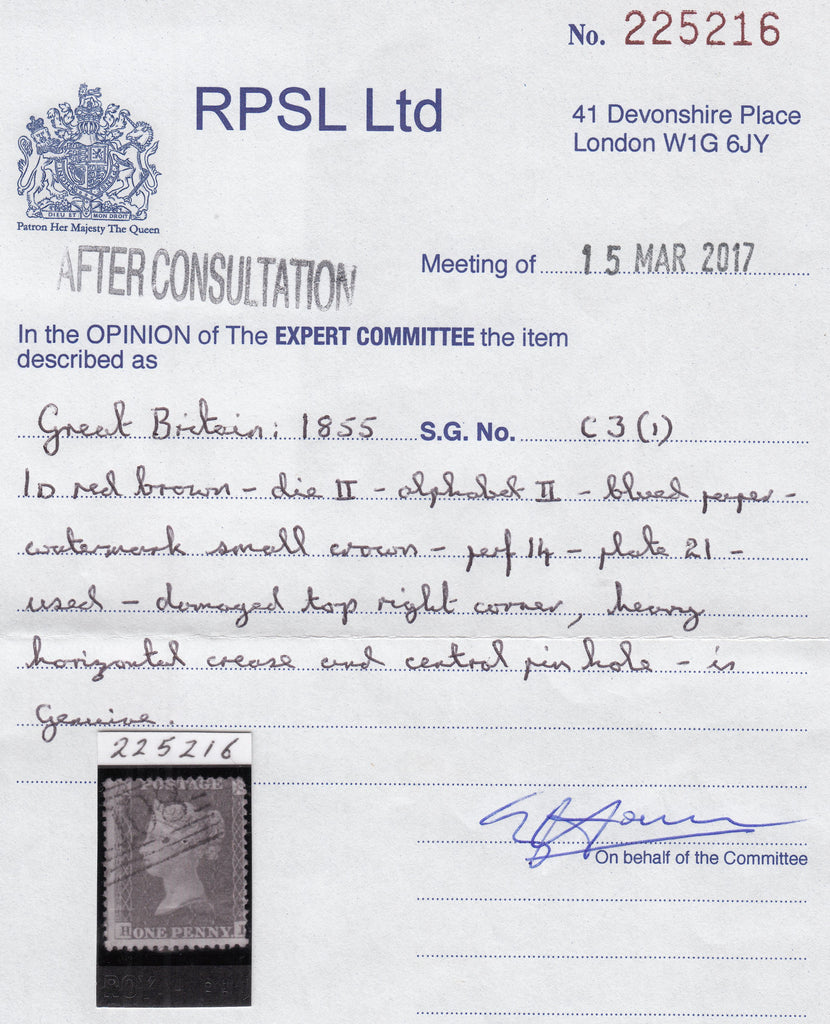 No. 225216
RPSL Ltd
41 Devonshire Place
London W1G 6JY
DIEU ET MON DROIT
Patron Her Majesty The Queen
AFTER CONSULTATION
Meeting of 15 MAR 2017
In the OPINION of The EXPERT COMMITTEE the item
described as
Great Britain: 1855 S.G. No. C3(1)
1D red brown - die II - alphabet II - blued paper -
watermark small crown - perf 14 - plate 21 -
used - damaged top right corner, heavy
horizontal crease and central pin hole - is
Genuine.
225216
POSTAGE
H ONE PENNY. I
On behalf of the Committee